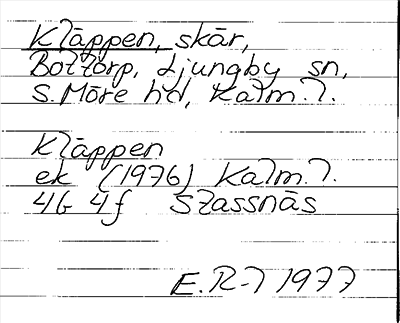 Kläppen, skär,
Bottorp, Ljungby sn,
S. Möre hd, Kalm. l.
Kläppen
ek (1976) Kalm. l.
4G 4f Stassnäs
E. R-l 1977